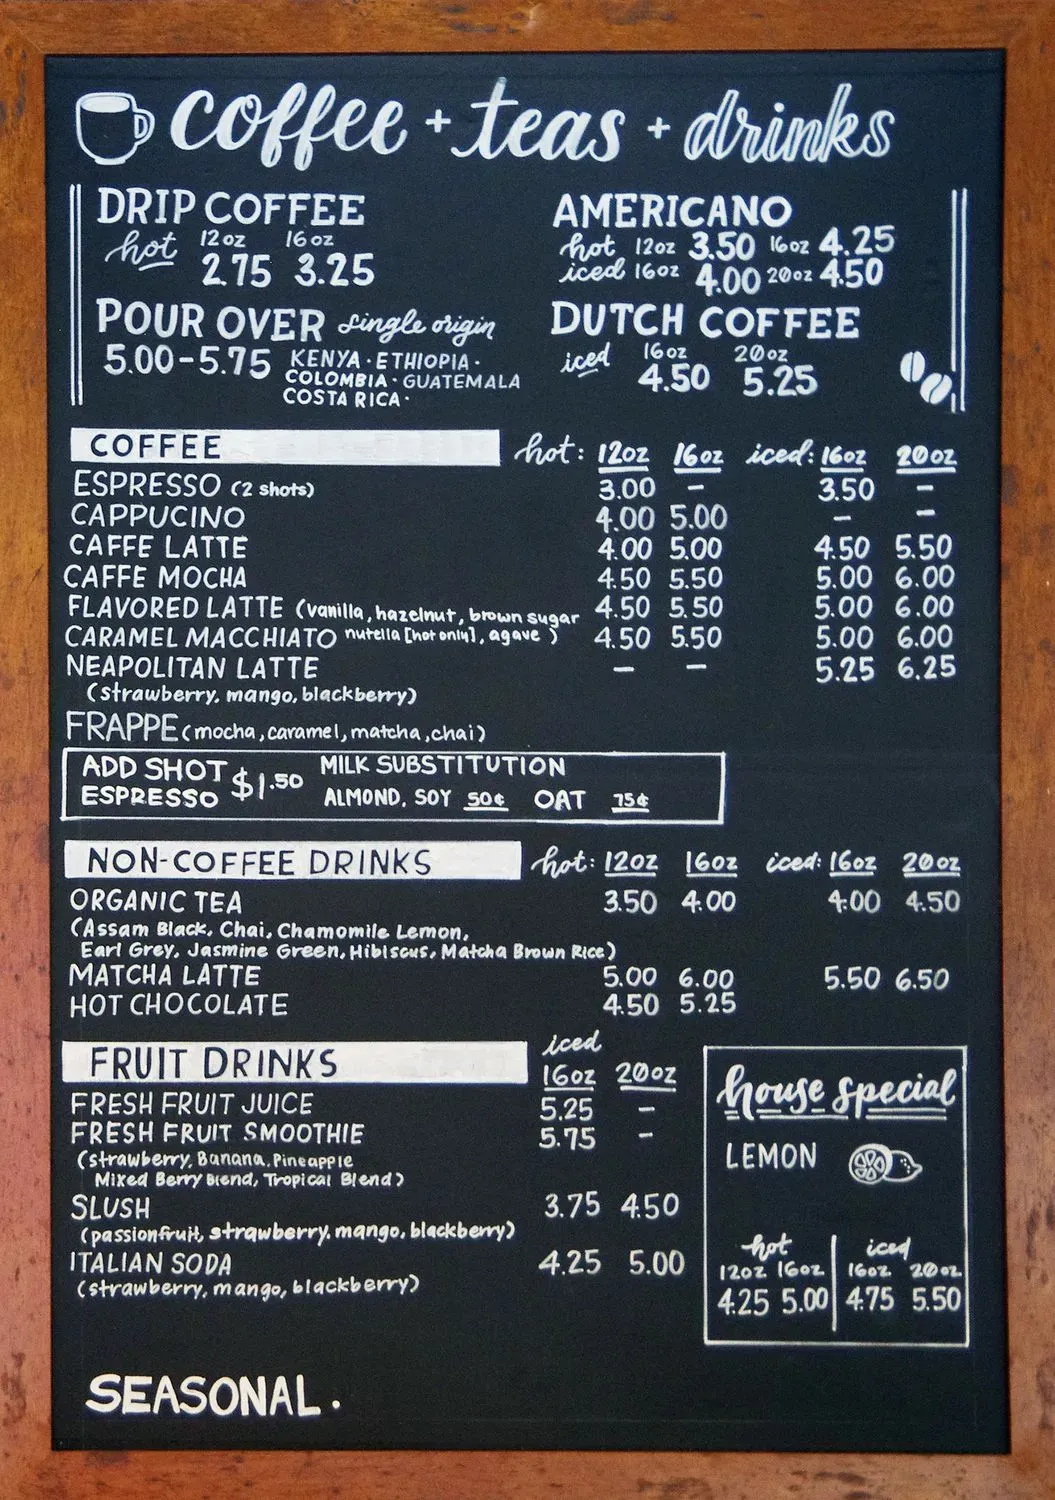 coffee + teas + drinks
DRIP COFFEE
hot 12oz 16oz
2.75 3.25
POUR OVER single origin
5.00-5.75 KENYA · ETHIOPIA ·
COLOMBIA · GUATEMALA
COSTA RICA ·
AMERICANO
hot 12oz 3.50 16oz 4.25
iced 16oz 4.00 20oz 4.50
DUTCH COFFEE
iced 16oz 20oz
4.50 5.25
COFFEE hot: 12oz 16oz iced: 16oz 20oz
ESPRESSO (2 shots) 3.00 – 3.50 –
CAPPUCINO 4.00 5.00 – –
CAFFE LATTE 4.00 5.00 4.50 5.50
CAFFE MOCHA 4.50 5.50 5.00 6.00
FLAVORED LATTE (vanilla, hazelnut, brown sugar 4.50 5.50 5.00 6.00
nutella [hot only], agave )
CARAMEL MACCHIATO 4.50 5.50 5.00 6.00
NEAPOLITAN LATTE – – 5.25 6.25
(strawberry, mango, blackberry)
FRAPPE (mocha, caramel, matcha, chai)
ADD SHOT ESPRESSO $1.50
MILK SUBSTITUTION
ALMOND, SOY 50¢ OAT 75¢
NON-COFFEE DRINKS hot: 12oz 16oz iced: 16oz 20oz
ORGANIC TEA 3.50 4.00 4.00 4.50
(Assam Black, Chai, Chamomile Lemon,
Earl Grey, Jasmine Green, Hibiscus, Matcha Brown Rice)
MATCHA LATTE 5.00 6.00 5.50 6.50
HOT CHOCOLATE 4.50 5.25
FRUIT DRINKS iced 16oz 20oz
FRESH FRUIT JUICE 5.25 –
FRESH FRUIT SMOOTHIE 5.75 –
(strawberry, Banana, Pineapple
Mixed Berry Blend, Tropical Blend)
SLUSH 3.75 4.50
(passionfruit, strawberry, mango, blackberry)
ITALIAN SODA 4.25 5.00
(strawberry, mango, blackberry)
house special
LEMON
hot iced
12oz 16oz 16oz 20oz
4.25 5.00 4.75 5.50
SEASONAL.